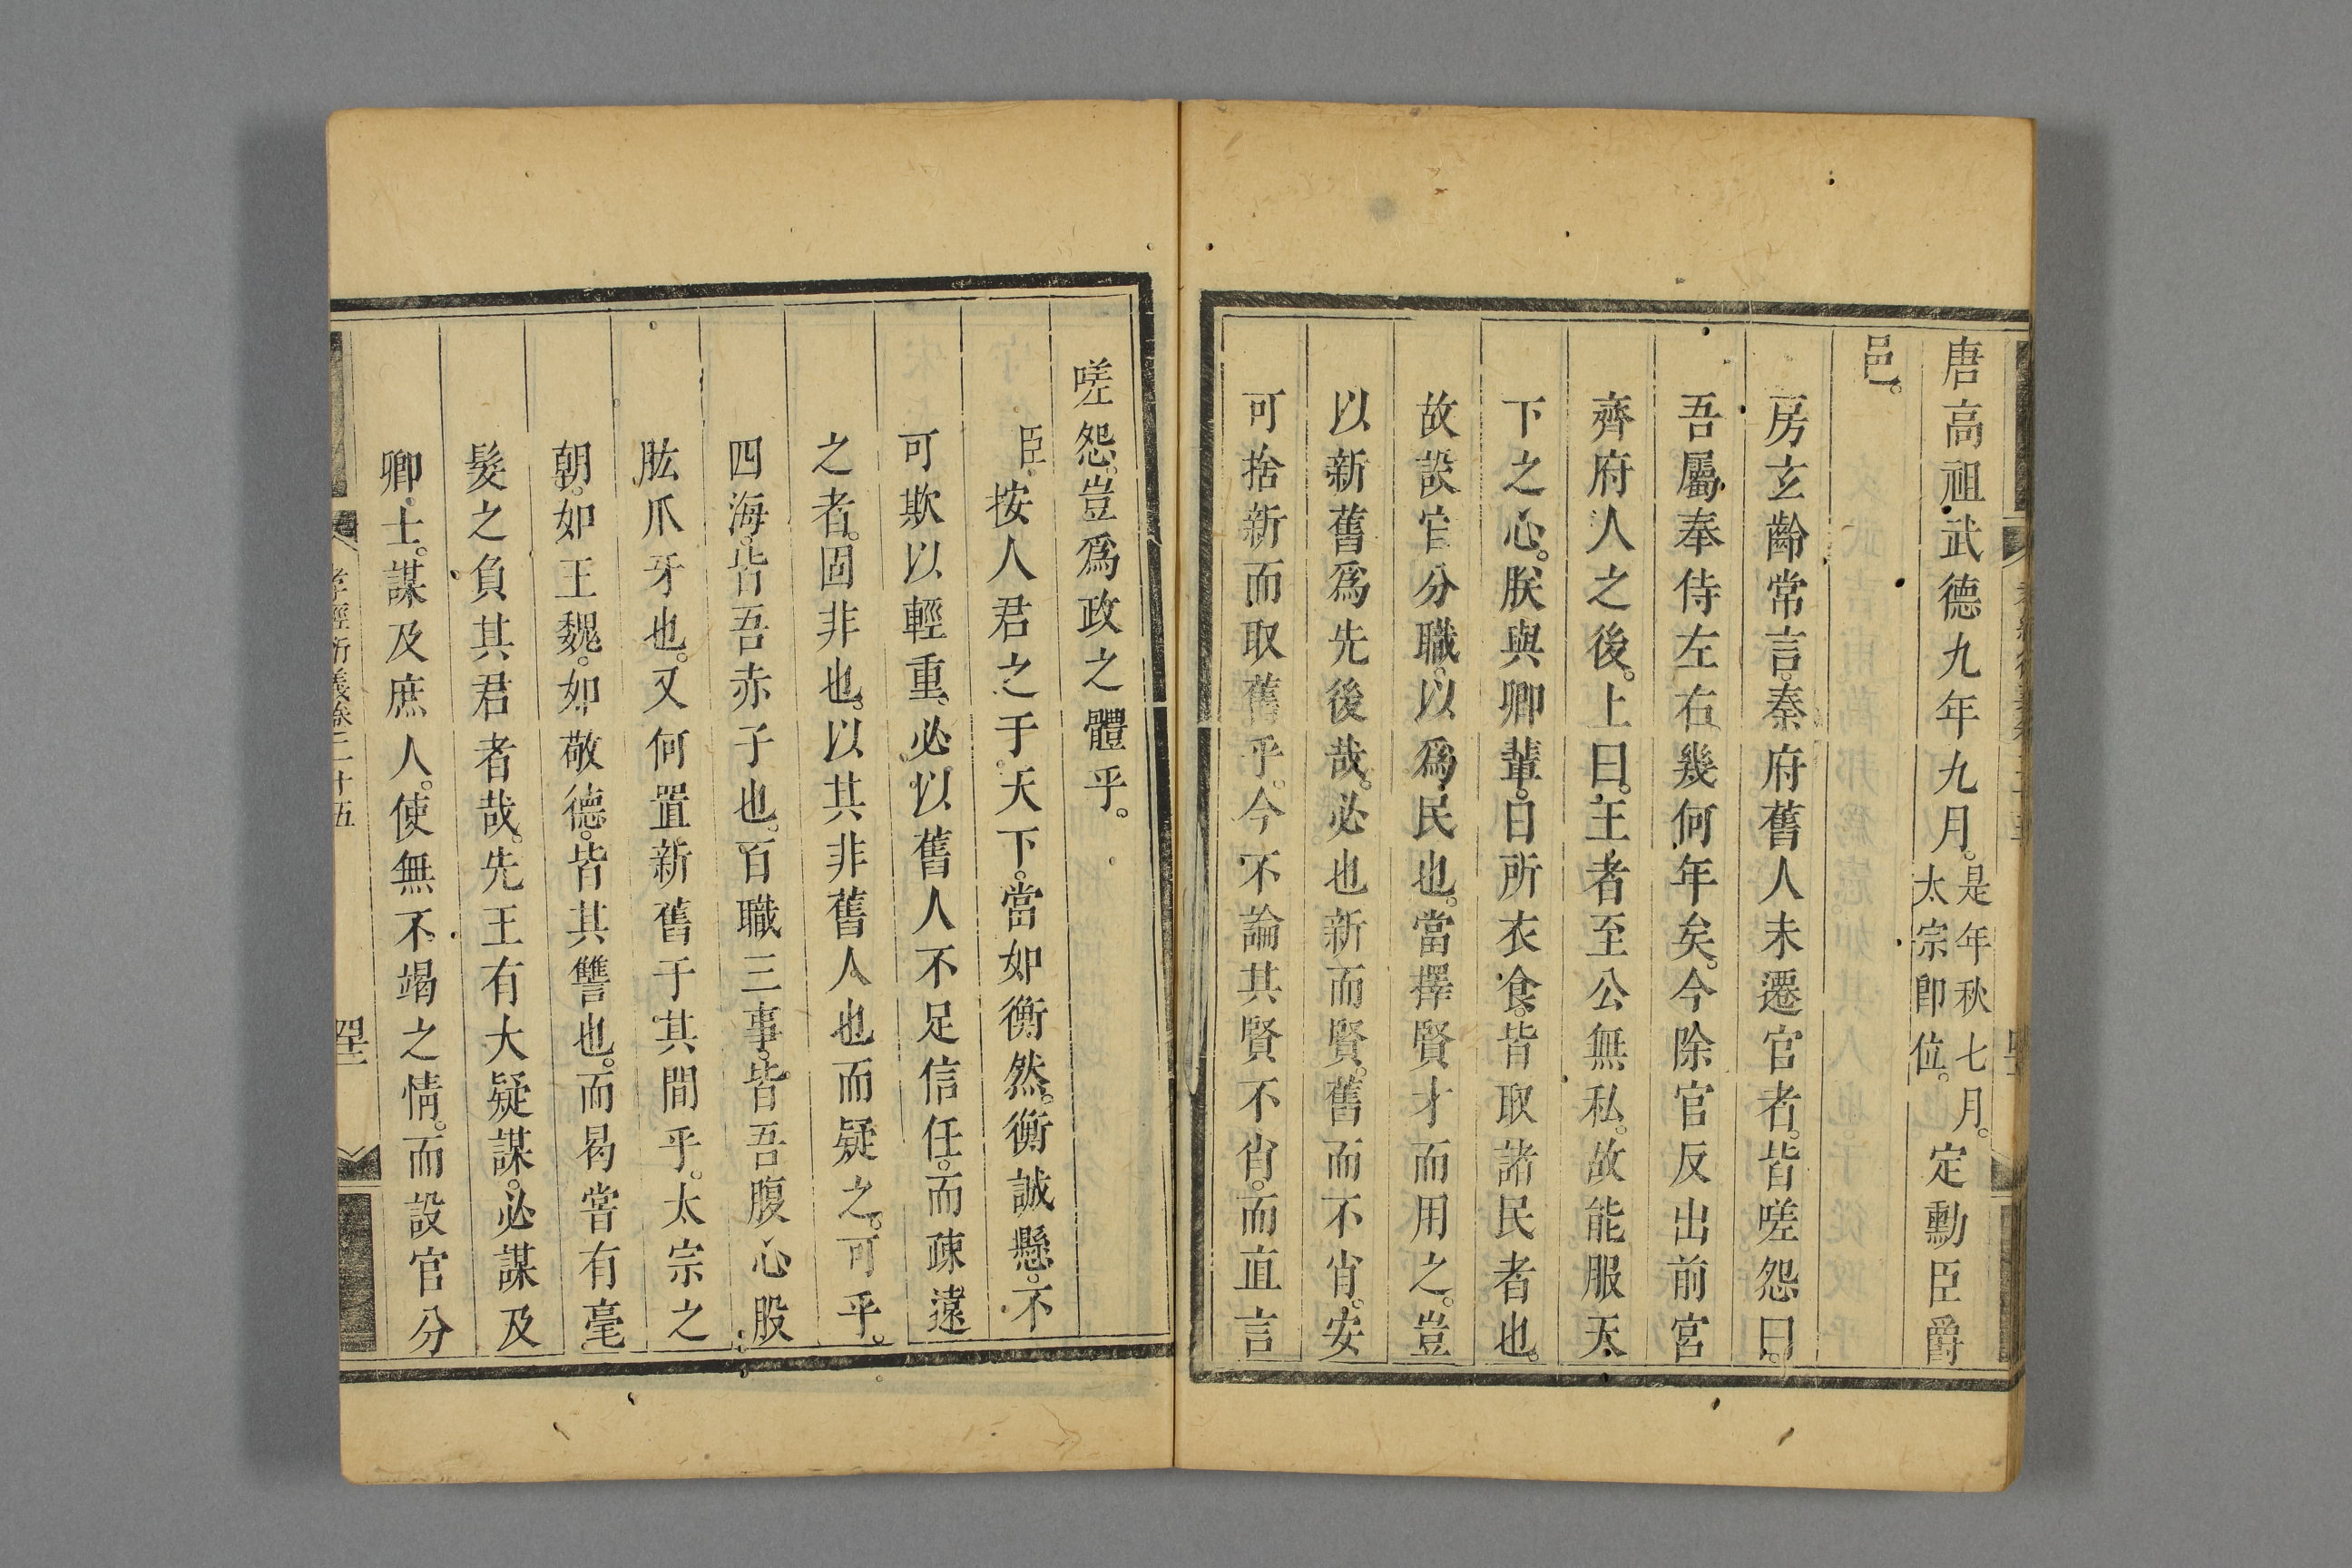 唐高祖武德九年九月。是年秋七月。太宗即位。定勳臣爵
邑。
房玄齡常言。秦府舊人未遷官者。皆嗟怨曰。
吾屬奉侍左右幾何年矣。今除官反出前宮
齊府人之後。上曰。王者至公無私。故能服天
下之心。朕與卿輩。日所衣食。皆取諸民者也。
故設官分職。以爲民也。當擇賢才而用之。豈
以新舊爲先後哉。必也新而賢。舊而不肖。安
可捨新而取舊乎。今不論其賢不肖。而直言
嗟怨。豈爲政之體乎。
臣按人君之于天下。當如衡然。衡誠懸。不
可欺以輕重。必以舊人不足信任。而疎遠
之者。固非也。以其非舊人也而疑之。可乎。
四海。皆吾赤子也。百職三事。皆吾腹心股
肱爪牙也。又何置新舊于其間乎。太宗之
朝。如王魏。如敬德。皆其讐也。而曷嘗有毫
髮之負其君者哉。先王有大疑謀。必謀及
卿士。謀及庶人。使無不竭之情。而設官分
孝經衍義卷三十五